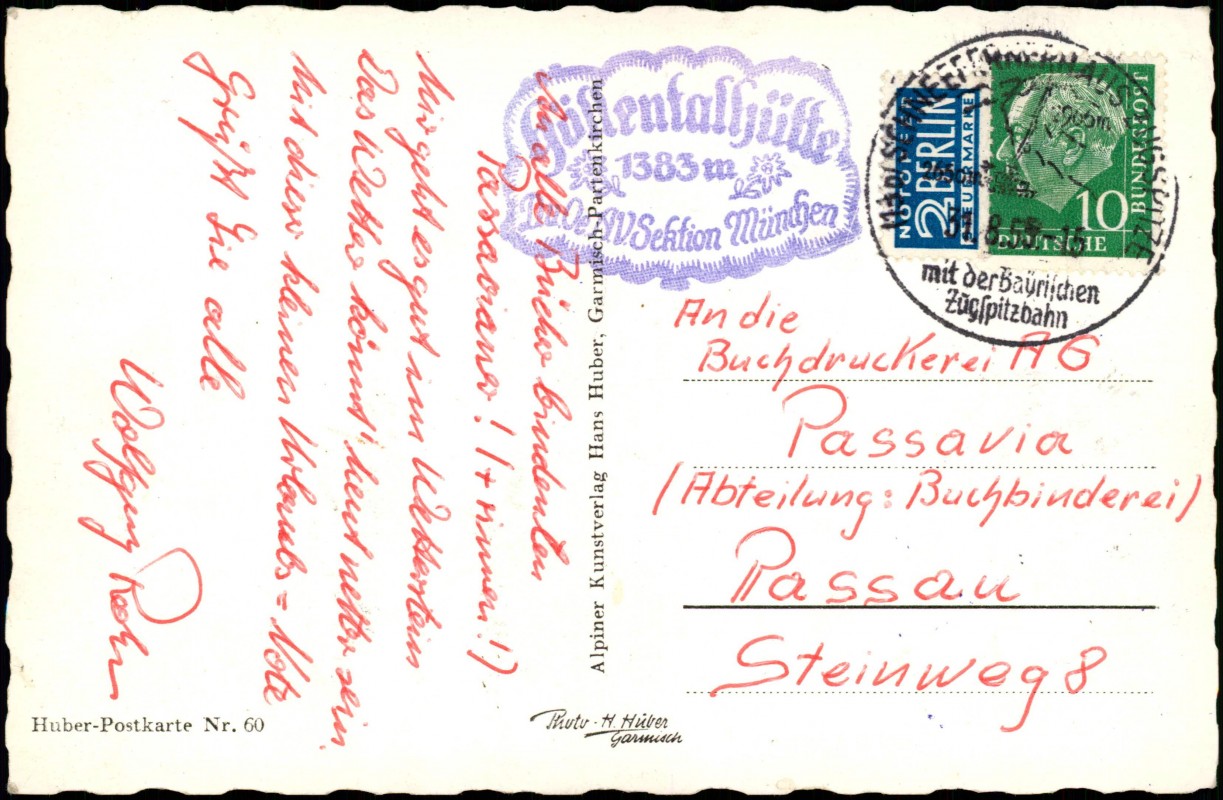 An alle Bücher bindenden
Passavianer! (+ rinnen!)
Mir geht es gut im Wetterstein
Das Wetter könnt' heut netter sein
Mit dieser kleinen Urlaubs=Note
Grüßt Sie alle
Wolfgang
Huber-Postkarte Nr. 60
Höllentalhütte
1383 m
Sektion München
Alpiner Kunstverlag Hans Huber, Garmisch-Partenkirchen
Photo - H. Huber
Garmisch
NOTOPFER
2 BERLIN
STEUERMARKE
10
DEUTSCHE
BUNDESPOST
SCHNEEFERNERHAUS
ZUGSPITZE
2650m
31.8.55.-15
mit der Bayrischen
Zugspitzbahn
An die
Buchdruckerei AG
Passavia
(Abteilung: Buchbinderei)
Passau
Steinweg 8